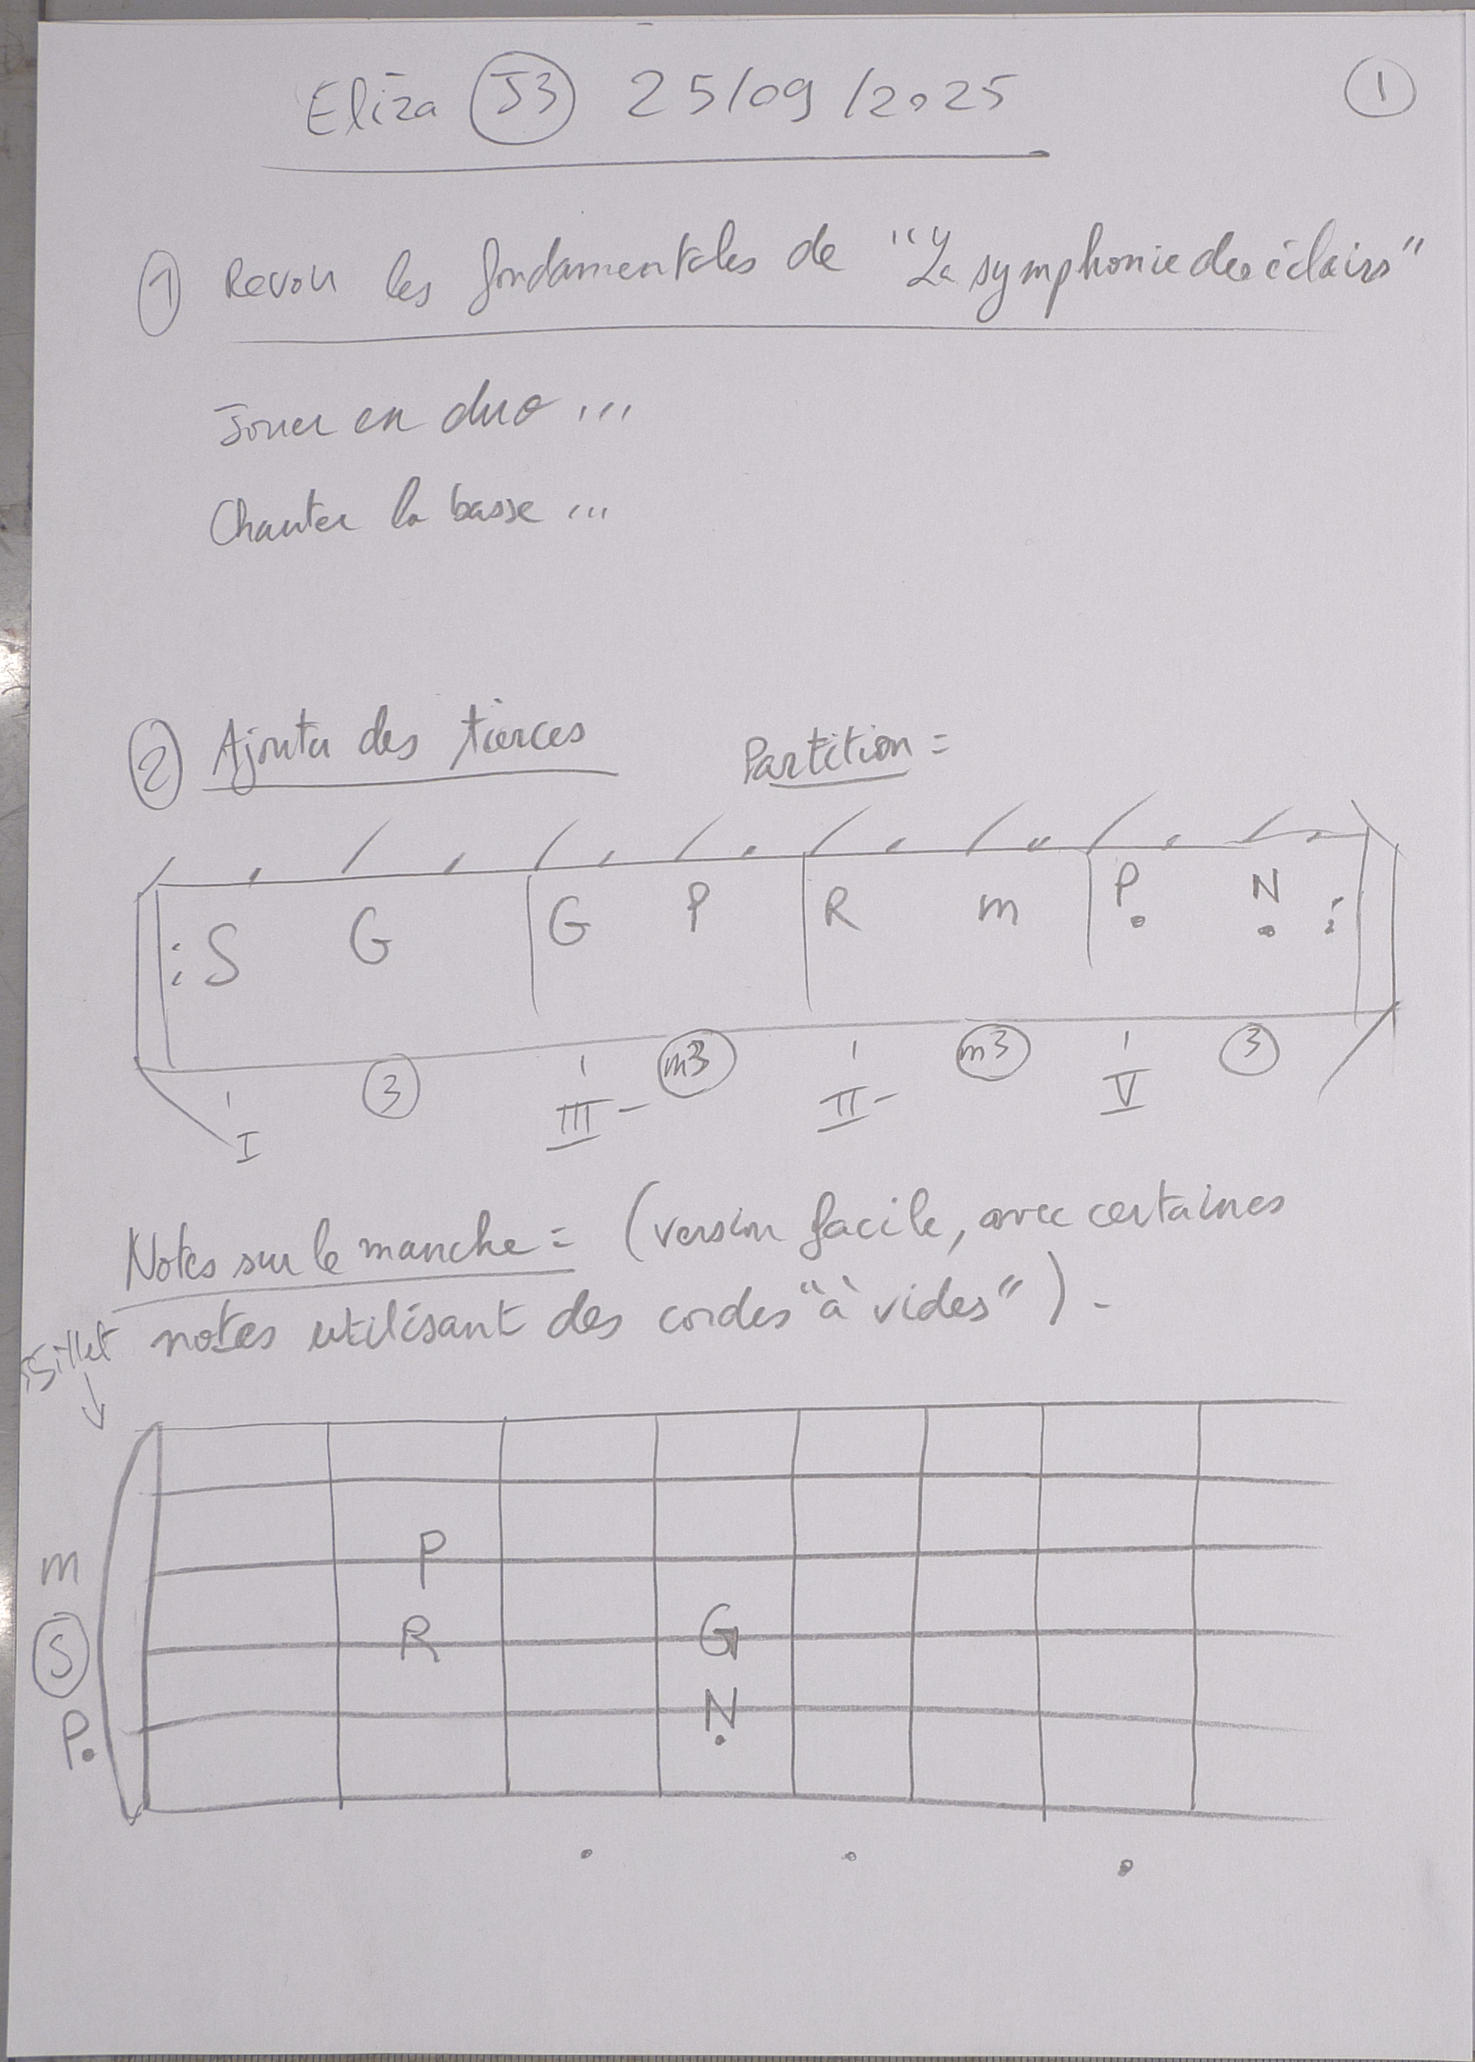 Eliza J3 25/09/2025
1
1 Revoir les fondamentales de "La symphonie des éclairs"
Jouer en duo ...
Chanter la basse ...
2 Ajouter des tierces Partition =
: S G G P R m P. N. :
I 3 III- m3 II- m3 V 3
Notes sur le manche = (version facile, avec certaines
notes utilisant des cordes "à vides").
Sillet
m P
S R G
P. N.